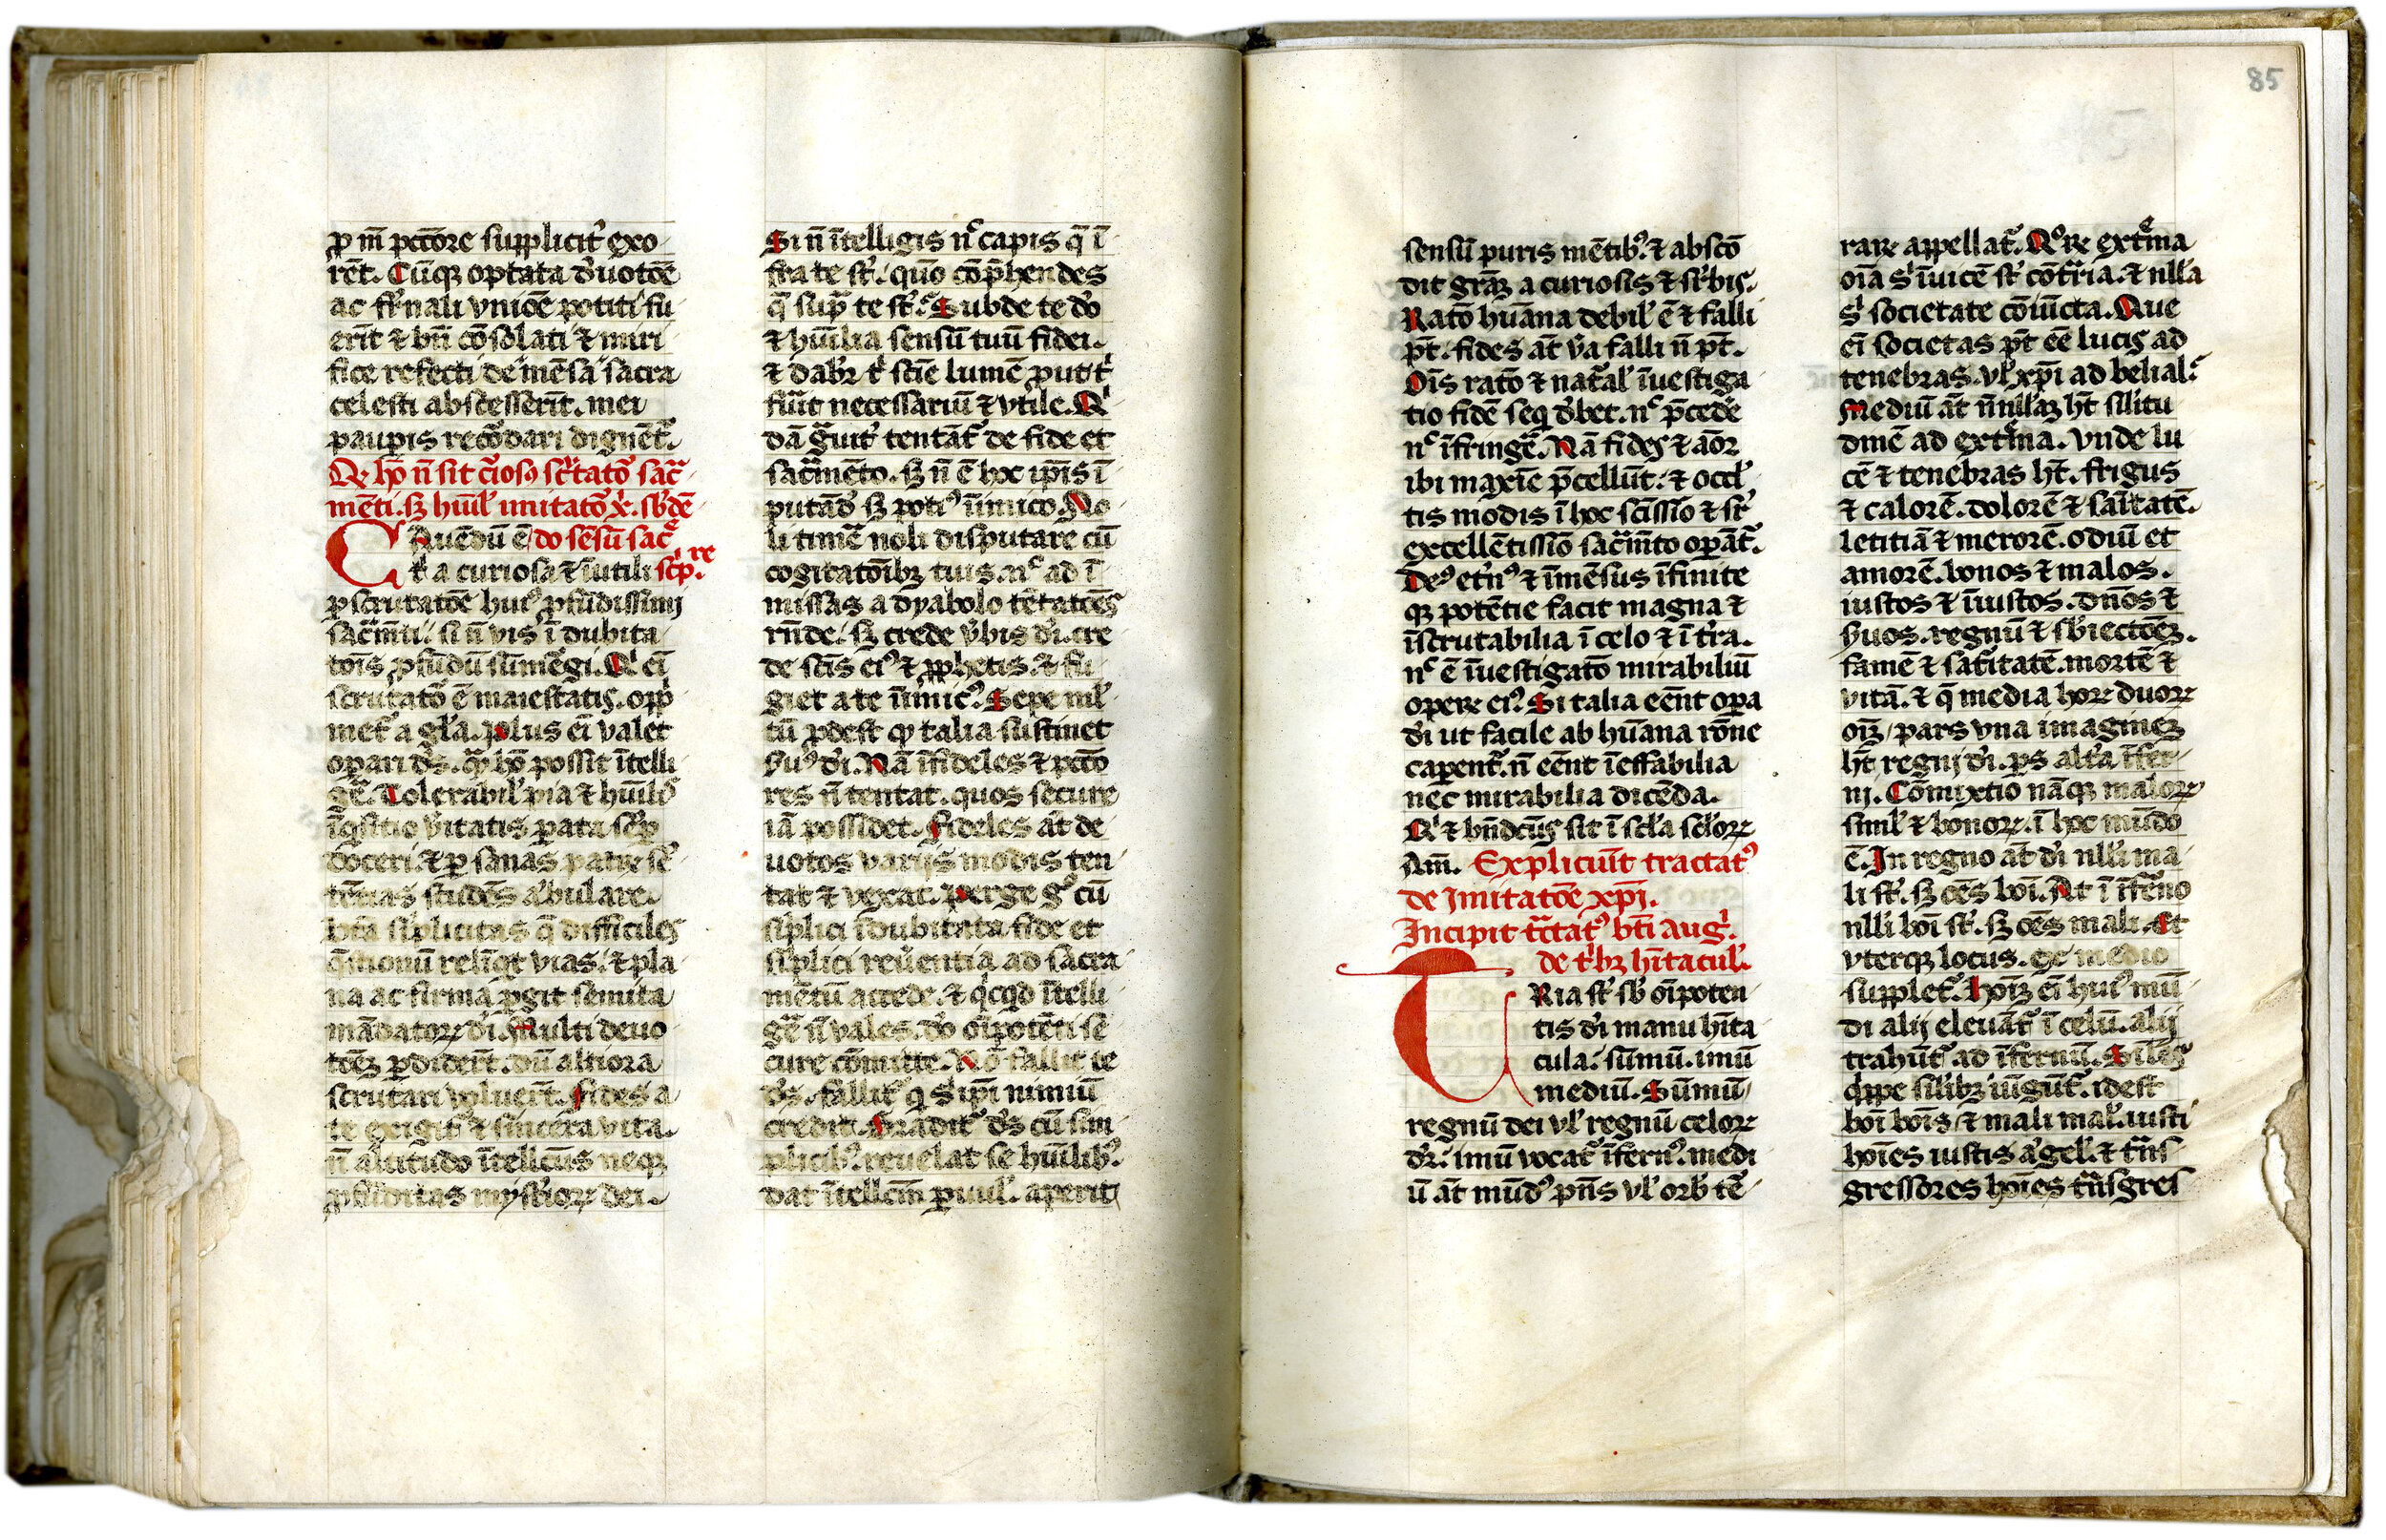 ꝓ m̄ pctōre supplicit᷑ exo
rēt. Cūqꝫ optata d̓uotōē
ac fr̄nali vnioē potiti fu
erīt ⁊ bn̄ cōsolati ⁊ miri
fice refecti de mēsa sacra
celesti abscesserīt. mei
paup̱is recōdari dignēt᷑.
Qꝫ hō n̄ sit c̓iosꝰ sc᷑tatoꝛ sac̓
mēti. sꝫ hūil̓ imitatoꝛ x̄. sb̓dē
do sēsū sac̓
Cauēdū ē
t̓ a curiosa ⁊ īutili scp̓.re
ꝑscrutatōe huiꝰ ꝓfūdissimi
sac̓mn̄ti. si n̄ vis ī dubita
tōis ꝓfūdū sūmergi. Qi eī
scrutatoꝛ ē maiestatis. opp̓
met᷑ a gl̓a. Plus eī valet
oꝑari d̓s. qꝫ hō possit ītelli
gē. Tolerabil̓ pia ⁊ hūil̓
īqͥsitio v̓itatis ꝑata sēꝑ
doceri. ⁊ ꝑ sanas patꝝ sē
tētias studēs ābulare.
btā sīplicitas q̄ difficiles
q̄stionū relīqͥt vias. ⁊ pla
na ac firma ꝑgit semita
mādatoꝝ d̓i. Multi deuo
tōeꝫ ꝑdider̄t. dū altiora
scrutari voluer̄t. Fides a
te exigit᷑ ⁊ sincera vita.
n̄ altitudo ītellcūs neqꝫ
ꝓfūditas mysterioꝝ dei.
Si n̄ ītelligis nͨ capis q̄ ī
fra te st̄. quō cōp̄hendes
q̄ supͣ te st̄. Subde te d̓o
⁊ hūilia sensū tuū fidei.
⁊ dabit᷑ tͥ scīe lumē ꝓut tͥ
fu̓it necessariū ⁊ vtile. Qi
dā gͣuit᷑ tentāt᷑ de fide et
sac̓mēto. sꝫ n̄ ē hoc ip̄is ī
putād̓ sꝫ potiꝰ inīmico. No
li timē noli disputare cū
cogitatōibꝫ tuis. nͨ ad ī
missas a dyabolo tētatōēs
rn̄de. sꝫ crede v̓bis d̓i. cre
de scīs eiꝰ ⁊ ꝓphetis. ⁊ fu
giet a te inīmicꝰ. Sepe ml̓
tū ꝓdest qꝫ talia sustinet
suꝰ d̓i. Nā īfideles ⁊ pctō
res n̄ tentat. quos secure
iā possidet. Fideles āt de
uotos varijs modis ten
tat ⁊ vexat. Perge gͦ cū
sīplici īdubitata fide et
sīplici reu̓entia ad sacra
mētū accede. ⁊ qͥcqͥd ītelli
gē n̄ vales. d̓o oīpotēti se
cure cōmitte. Nō fallit te
d̓s. fallit᷑ qͥ sͥ ip̄i nimiū
credit. Gradit᷑ d̓s cū sim
plicibꝰ. reuelat se hūilibꝰ.
dat ītellc̄m ꝑuul̓. aperit
85
sensū puris mētibꝰ. ⁊ abscō
dit gr̄aꝫ a curiosis ⁊ suꝑbis.
Ratō hūana debil̓ ē ⁊ falli
pt̄. fides āt v̓a falli n̄ pt̄.
Oīs ratō ⁊ natͣal̓ īuestiga
tio fidē seqͥ d̓bet. nͨ p̄cede
nͨ īfringē. Nā fides ⁊ amoꝛ
ibi maxīe p̄cellūt. ⁊ occl̓
tis modis ī hoc scīssīo ⁊ suꝑ
excellētissīo sac̓mn̄to oꝑāt᷑.
Deꝰ et̓nꝰ ⁊ īmēsus īfinite
qꝫ potētie facit magna ⁊
īscrutabilia ī celo ⁊ ī t̓ra.
nͨ ē īuestigatō mirabiliū
operū eiꝰ. Si talia eēnt oꝑa
d̓i ut facile ab hūana rōne
caperent᷑. n̄ eēnt īeffabilia
nec mirabilia dicēda.
Qi ⁊ bn̄dcūs sit ī scl̓a scl̓oꝝ
Am̄. Expliciūt tractatꝰ
de Imitatōe xp̄i.
Incipit tc̄tatꝰ bt̄i Aug̓.
de tͥbꝫ hītacul̓.
TRia st̄ sb̓ oīpoten
tis d̓i manu hīta
cula. sūmū. imū
mediū. Sūmū
regnū dei vl̓ regnū celoꝝ
dr̄. imū vocat᷑ īfernꝰ. medi
ū āt mūdꝰ pn̄s vl̓ orb̓ t̓re
rare appellat᷑. Qoꝝ extͥma
oīa sͥ īuicē st̄ cōtͣria. ⁊ nll̓a
sͥ societate cōiūcta. Que
eī societas pt̄ eē lucis ad
tenebras. vl̓ xp̄i ad belial.
Mediū āt n̄nullaꝫ hꝫ sīlitu
dinē ad extͥma. vnde lu
cē ⁊ tenebras hꝫ. frigus
⁊ calorē. dolorē ⁊ saītatē.
letitiā ⁊ merorē. odiū et
amorē. bonos ⁊ malos.
iustos ⁊ īiustos. dn̄os ⁊
suos. regnū ⁊ sb̓iectōeꝫ.
famē ⁊ saturitatē. mortē ⁊
vitā. ⁊ q̄ media hoꝝ duoꝝ
oīꝫ. pars vna imagineꝫ
hꝫ regni d̓i. ps alt̓a īfer
ni. Cōmixtio nāqꝫ maloꝝ
simul ⁊ bonoꝝ. ī hoc mūdo
ē. In regno āt d̓i nlli ma
li st̄. sꝫ oēs boi. At ī īferno
nlli boi st̄. sꝫ oēs mali. Et
vterqꝫ locus. ex medio
supplet᷑. Hoīꝫ eī huiꝰ mū
di alij eleuāt᷑ ī celū. alij
trahūt᷑ ad īfernū. Siles
qͥppe silibꝫ iūgūt᷑. idest
boi bois. ⁊ mali mal̓. iusti
hoīes iustis āgel̓. ⁊ tͣns
gressores hoīes tͣnsgres